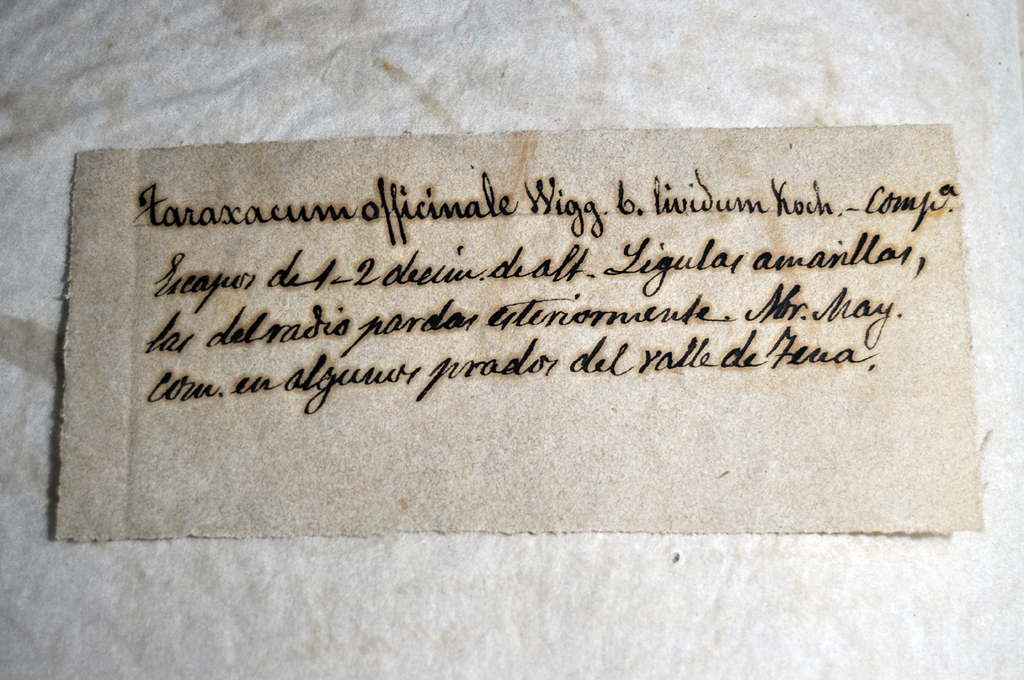 Taraxacum officinale Wigg. b. lividum Koch. - Compª.
Escapos de 1-2 decím. de alt. Lígulas amarillas,
las del radio pardas esteriormente. Abr. May.
com. en algunos prados del valle de Tena.